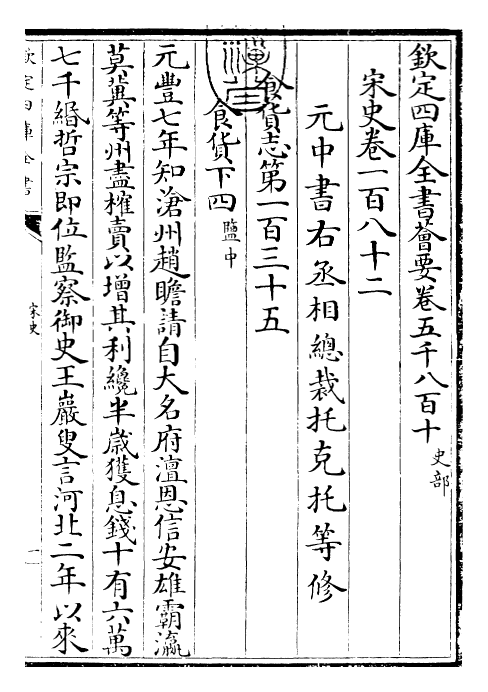 欽定四庫全書薈要卷五千八百十 史部
宋史卷一百八十二
元中書右丞相總裁托克托等修
食貨志第一百三十五
食貨下四 鹽中
元豐七年知滄州趙瞻請自大名府澶恩信安雄霸瀛
莫冀等州盡榷賣以增其利纔半歲獲息錢十有六萬
七千緡哲宗即位監察御史王巖叟言河北二年以來
欽定四庫全書
宋史
一